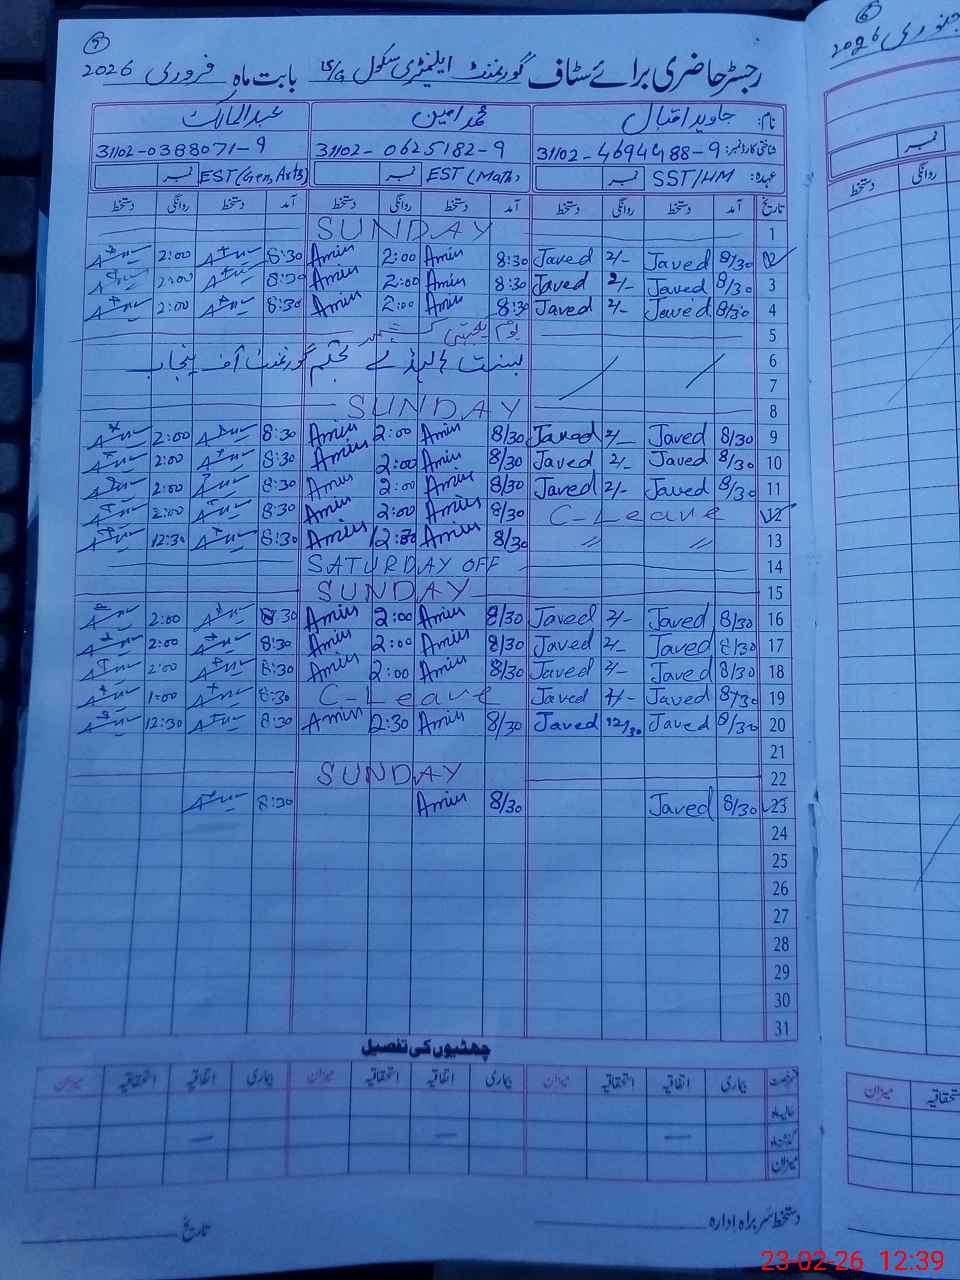 رجسٹر حاضری برائے سٹاف گورنمنٹ ایلیمنٹری سکول 15/G بابت ماہ فروری 2026
نام: جاوید اقبال محمد امین عبدالمالک
شناختی کارڈ نمبر: 31102-4694488-9 31102-0625182-9 31102-0388071-9
عہدہ: SST/HM نمبر EST(Math) نمبر EST(Gen,Arts) نمبر
تاریخ آمد دستخط روانگی دستخط آمد دستخط روانگی دستخط آمد دستخط روانگی دستخط
1 SUNDAY
2 8/30 Javed 2/- Javed 8:30 Amin 2:00 Amin 8:30 2:00
3 8/30 Javed 2/- Javed 8:30 Amin 2:00 Amin 8:30 2:00
4 8/30 Javed 2/- Javed 8:30 Amin 2:00 Amin 8:30 2:00
5 یوم یکجہتی کشمیر
6 بسنت بحکم گورنمنٹ آف پنجاب
7
8 SUNDAY
9 8/30 Javed 2/- Javed 8/30 Amin 2:00 Amin 8:30 2:00
10 8/30 Javed 2/- Javed 8/30 Amin 2:00 Amin 8:30 2:00
11 8/30 Javed 2/- Javed 8/30 Amin 2:00 Amin 8:30 2:00
12 C-Leave 8/30 Amin 2:00 Amin 8:30 2:00
13 〃 〃 8/30 Amin 12:30 Amin 8:30 12:30
14 SATURDAY OFF
15 SUNDAY
16 8/30 Javed 2/- Javed 8/30 Amin 2:00 Amin 8:30 2:00
17 8/30 Javed 2/- Javed 8/30 Amin 2:00 Amin 8:30 2:00
18 8/30 Javed 2/- Javed 8/30 Amin 2:00 Amin 8:30 2:00
19 8/30 Javed Javed C-Leave 8:30 1:00
20 8/30 Javed 12/30 Javed 8/30 Amin 2:30 Amin 8:30 12:30
21
22 SUNDAY
23 8/30 Javed 8/30 Amin 8:30
24
25
26
27
28
29
30
31
چھٹیوں کی تفصیل
رخصت بیماری اتفاقیہ استحقاقیہ میزان بیماری اتفاقیہ استحقاقیہ میزان بیماری اتفاقیہ استحقاقیہ میزان
حالیہ ماہ
گذشتہ ماہ — — —
میزان
دستخط سربراہ ادارہ تاریخ
6
جنوری 2026
نمبر
روانگی دستخط
استحقاقیہ میزان
23-02-26 12:39